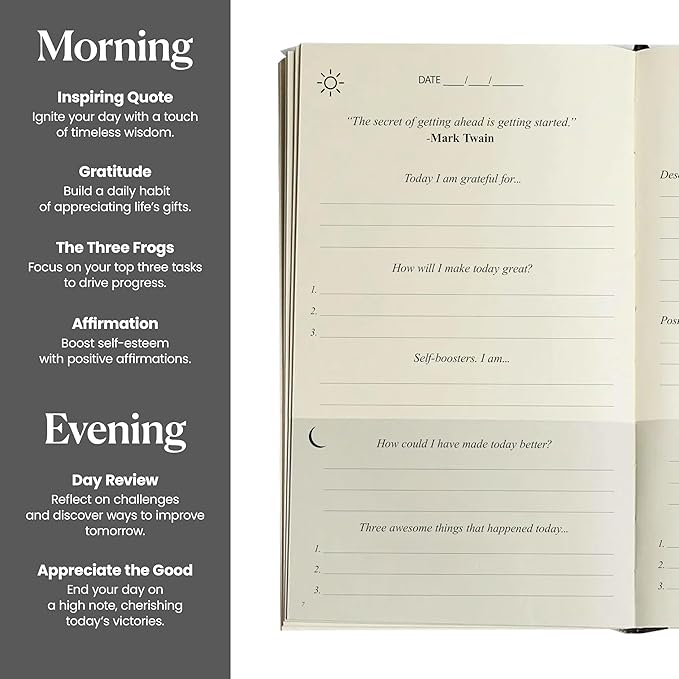 Morning
Inspiring Quote
Ignite your day with a touch
of timeless wisdom.
Gratitude
Build a daily habit
of appreciating life's gifts.
The Three Frogs
Focus on your top three tasks
to drive progress.
Affirmation
Boost self-esteem
with positive affirmations.
Evening
Day Review
Reflect on challenges
and discover ways to improve
tomorrow.
Appreciate the Good
End your day on
a high note, cherishing
today's victories.
DATE ___/___/_____
"The secret of getting ahead is getting started."
-Mark Twain
Today I am grateful for...
How will I make today great?
1.
2.
3.
Self-boosters. I am...
How could I have made today better?
Three awesome things that happened today...
1.
2.
3.
7
Des
Posi
1.
2.
3.